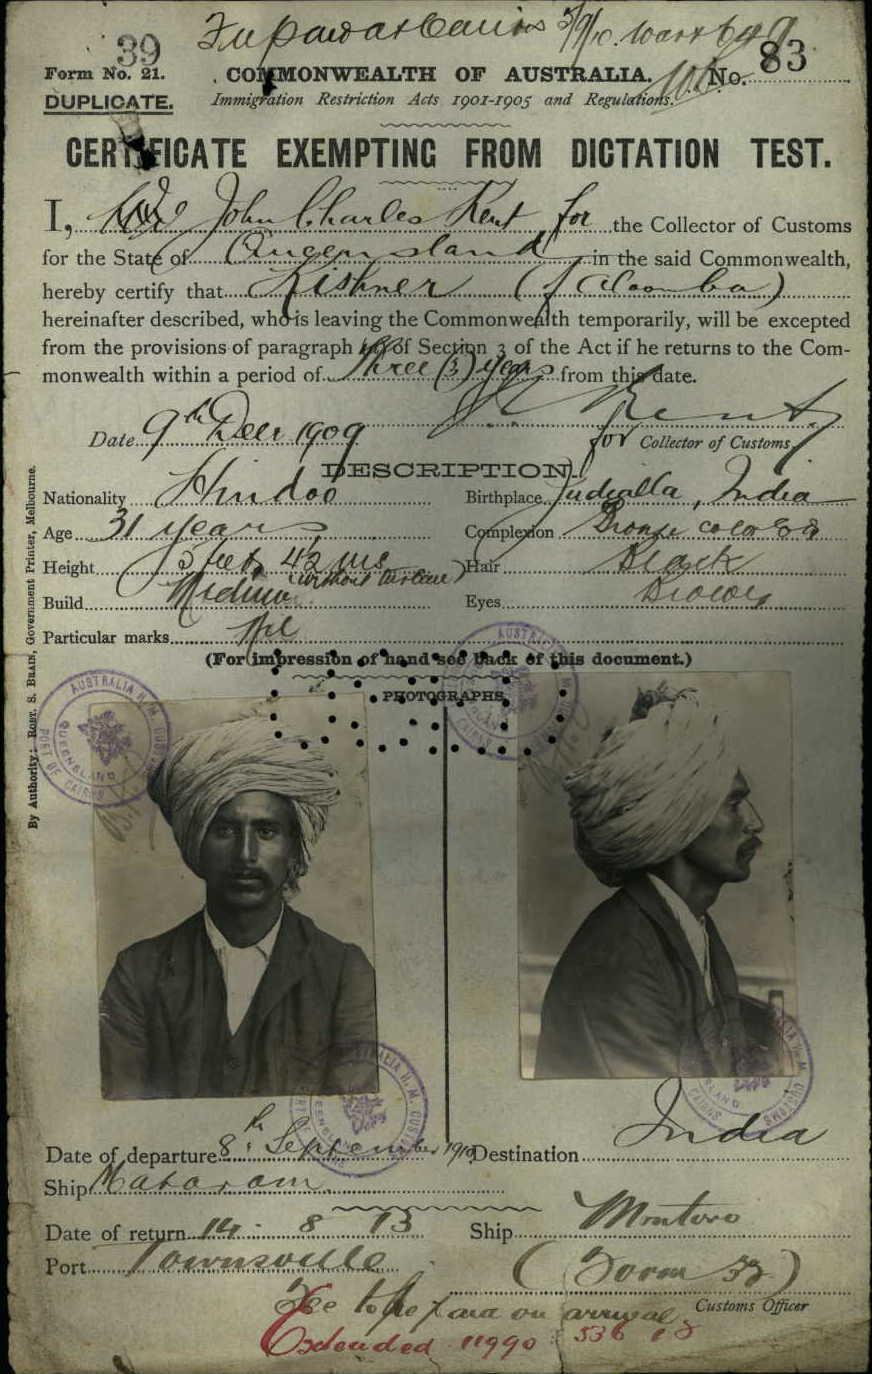 39
83
Form No. 21. COMMONWEALTH OF AUSTRALIA. No.
DUPLICATE. Immigration Restriction Acts 1901-1905 and Regulations.
CERTIFICATE EXEMPTING FROM DICTATION TEST.
I, John Charles Kent for the Collector of Customs
for the State of Queensland in the said Commonwealth,
hereby certify that Kishner (of Aloomba)
hereinafter described, who is leaving the Commonwealth temporarily, will be excepted
from the provisions of paragraph of Section 3 of the Act if he returns to the Com-
monwealth within a period of Three (3) years from this date.
J C Kent
Date 9th Decr 1909 for Collector of Customs
DESCRIPTION.
Nationality Hindoo Birthplace India
Age 31 years Complexion Bronze colored
Height 5 feet 4½ ins (without turban) Hair Black
Build Medium Eyes Brown
Particular marks Nil
(For impression of hand see back of this document.)
PHOTOGRAPHS.
By Authority: ROBT. S. BRAIN, Government Printer, Melbourne.
AUSTRALIA H.M. CUSTOMS
QUEENSLAND
PORT OF CAIRNS
Date of departure 8th September 1910 Destination India
Ship Mataram
Date of return 14 8 13 Ship Montoro
Port Townsville (Form 32)
Customs Officer
Fee to be paid on arrival
Extended 11990